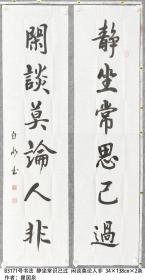 静坐常思己過
閑談莫論人非
白水书
83171号书法 静坐常识己过 闲谈莫论人非 34×138cm×2条
作者：晁国泉